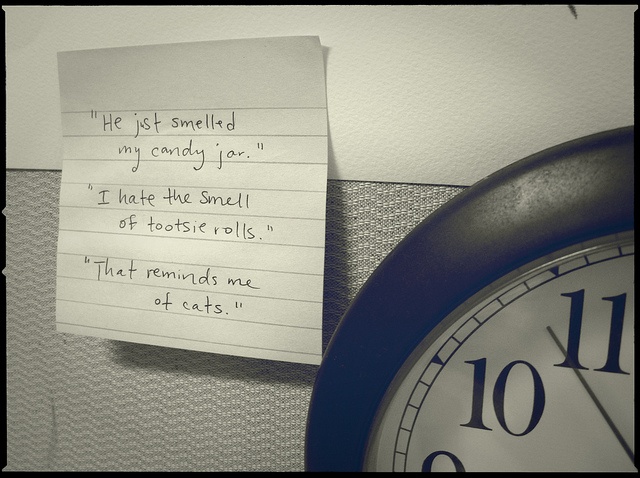 "He just smelled
my candy jar."
"I hate the smell
of tootsie rolls."
"That reminds me
of cats."
11
10
9